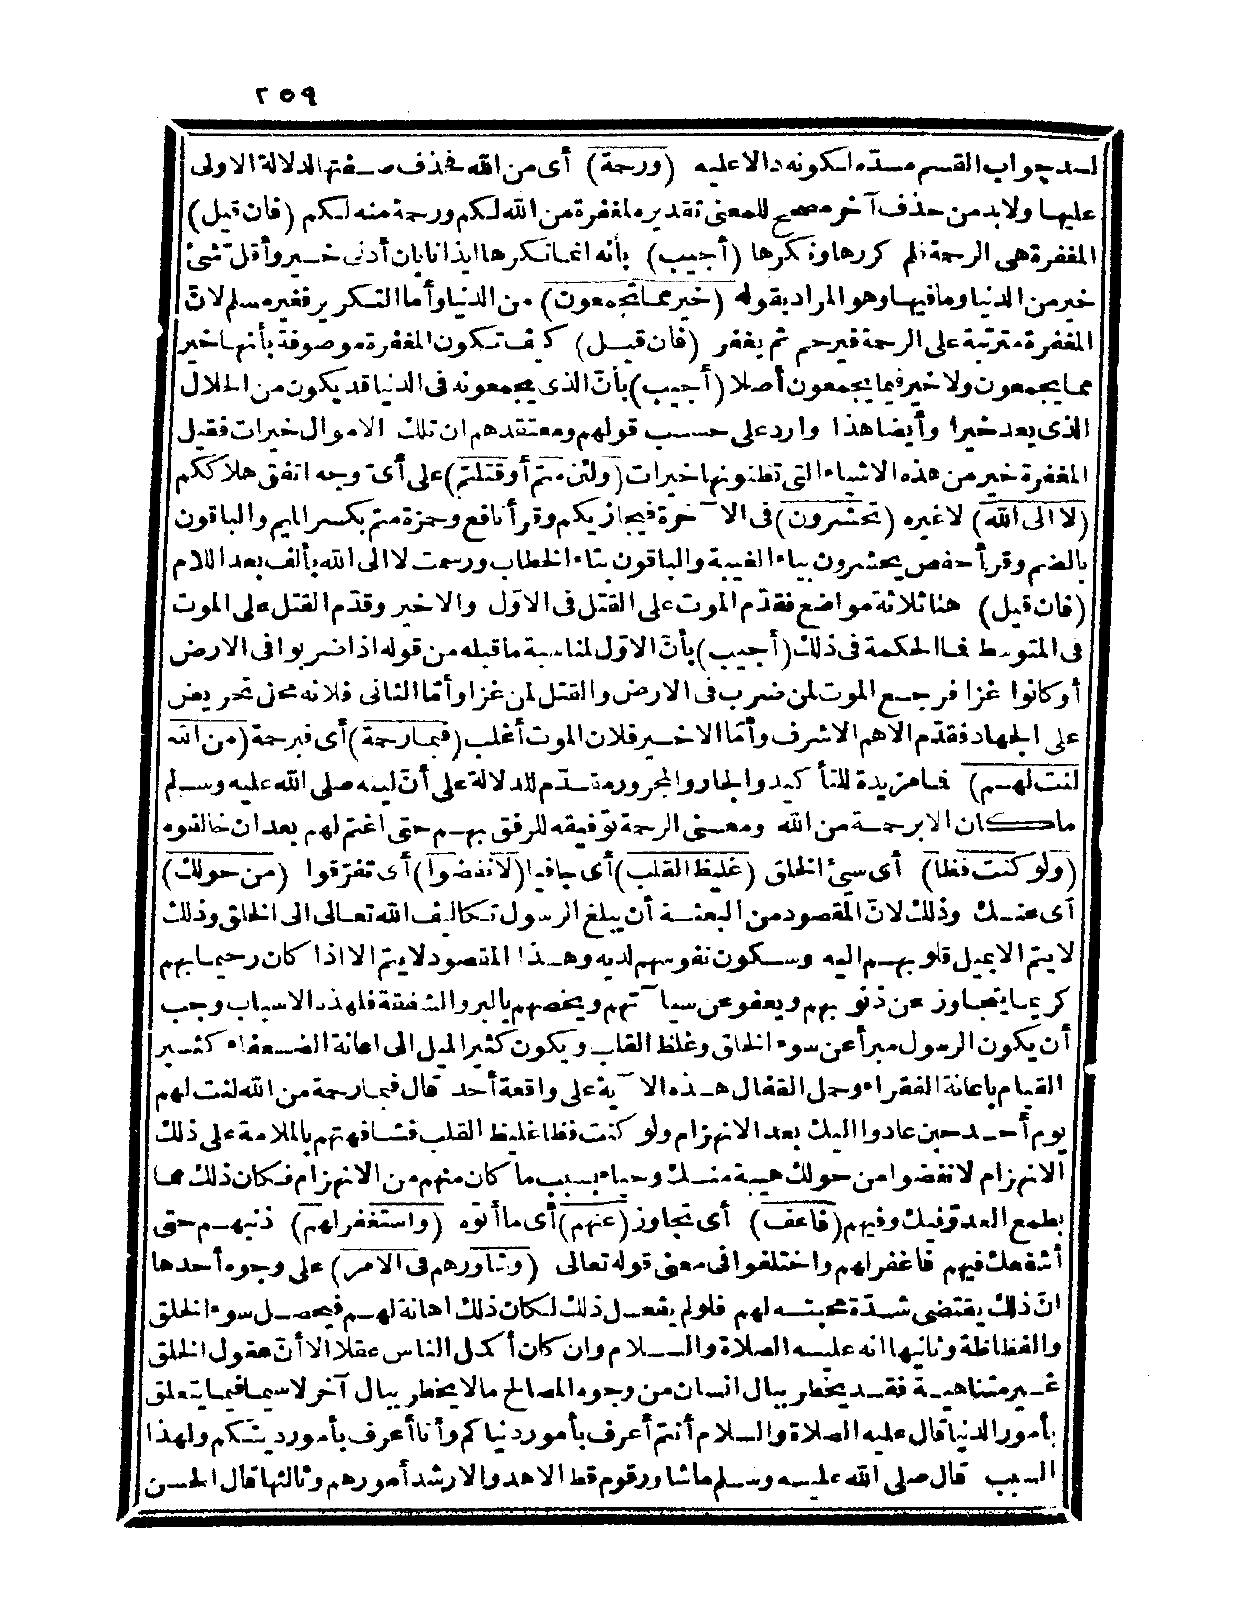 ٢٥٩
لسد جواب القسم مسدّه لكونه دالا عليه (ورحمة) أى من الله فحذف صفتها لدلالة الاولى
عليها ولابد من حذف آخر مصحح للمعنى تقديره لمغفرة من الله لكم ورحمة منه لكم (فان قيل)
المغفرة هى الرحمة فلم كررها ونكرها (أجيب) بأنه انما نكرها ايذانا بان أدنى خير وأقل شئ
خير من الدنيا وما فيها وهو المراد بقوله (خير مما تجمعون) من الدنيا وأما التكرير فغير مسلم لانّ
المغفرة مترتبة على الرحمة فيرحم ثم يغفر (فان قيل) كيف تكون المغفرة موصوفة بأنها خير
مما يجمعون ولا خير فيما يجمعون أصلا (أجيب) بأنّ الذى يجمعونه فى الدنيا قد يكون من الحلال
الذى يعد خيرا وأيضا هذا وارد على حسب قولهم ومعتقدهم ان تلك الاموال خيرات فقيل
المغفرة خير من هذه الاشياء التى تظنونها خيرات (ولئن متم أو قتلتم) على أىّ وجه اتفق هلاككم
(لا الى الله) لا غيره (تحشرون) فى الآخرة فيجازيكم وقرأ نافع وحمزة متم بكسر الميم والباقون
بالضم وقرأ حفص يحشرون بياء الغيبة والباقون بتاء الخطاب ورسمت لا الى الله بألف بعد اللام
(فان قيل) هنا ثلاثة مواضع فقدّم الموت على القتل فى الاوّل والاخير وقدّم القتل على الموت
فى المتوسط فما الحكمة فى ذلك (أجيب) بأنّ الاوّل لمناسبة ما قبله من قوله اذا ضربوا فى الارض
أو كانوا غزا فرجع الموت لمن ضرب فى الارض والقتل لمن غزا وأمّا الثانى فلانه محل تحريض
على الجهاد فقدّم الاهم الاشرف وأمّا الاخير فلان الموت أغلب (فبما رحمة) أى فبرحمة (من الله
لنت لهم) فما مزيدة للتأكيد والجار والمجرور مقدّم للدلالة على أنّ لينه صلى الله عليه وسلم
ما كان الا برحمة من الله ومعنى الرحمة توفيقه للرفق بهم حتى اغتم لهم بعد ان خالفوه
(ولو كنت فظا) أى سئ الخلق (غليظ القلب) أى جافيا (لانفضوا) أى تفرّقوا (من حولك)
أى عنك وذلك لانّ المقصود من البعثة أن يبلغ الرسول تكاليف الله تعالى الى الخلق وذلك
لا يتم الا بميل قلوبهم اليه وسكون نفوسهم لديه وهذا المقصود لا يتم الا اذا كان رحيما بهم
كريما يتجاوز عن ذنوبهم ويعفو عن سيآتهم ويخصهم بالبر والشفقة فلهذه الاسباب وجب
أن يكون الرسول مبرأ عن سوء الخلق وغلظ القلب ويكون كثير الميل الى اعانة الضعفاء كثير
القيام باعانة الفقراء وحمل القفال هذه الآية على واقعة أحد قال فبما رحمة من الله لنت لهم
يوم أحد حين عادوا اليك بعد الانهزام ولو كنت فظا غليظ القلب فشافهتهم بالملامة على ذلك
الانهزام لانفضوا من حولك هيبة منك وحياء بسبب ما كان منهم من الانهزام فكان ذلك مما
يطمع العدوّ فيك وفيهم (فاعف) أى تجاوز (عنهم) أى ما أتوه (واستغفر لهم) ذنبهم حتى
أشفعك فيهم فاغفر لهم واختلفوا فى معنى قوله تعالى (وشاورهم فى الامر) على وجوه أحدها
انّ ذلك يقتضى شدّة محبته لهم فلو لم يفعل ذلك لكان ذلك اهانة لهم فيحصل سوء الخلق
والفظاظة وثانيها انه عليه الصلاة والسلام وان كان أكمل الناس عقلا الا أنّ عقول الخلق
غير متناهية فقد يخطر ببال انسان من وجوه المصالح ما لا يخطر ببال آخر لاسيما فيما يتعلق
بأمور الدنيا قال عليه الصلاة والسلام أنتم أعرف بأمور دنياكم وأنا أعرف بأمور دينكم ولهذا
السبب قال صلى الله عليه وسلم ما شاور قوم قط الا هدوا لارشد أمورهم وثالثها قال الحسن